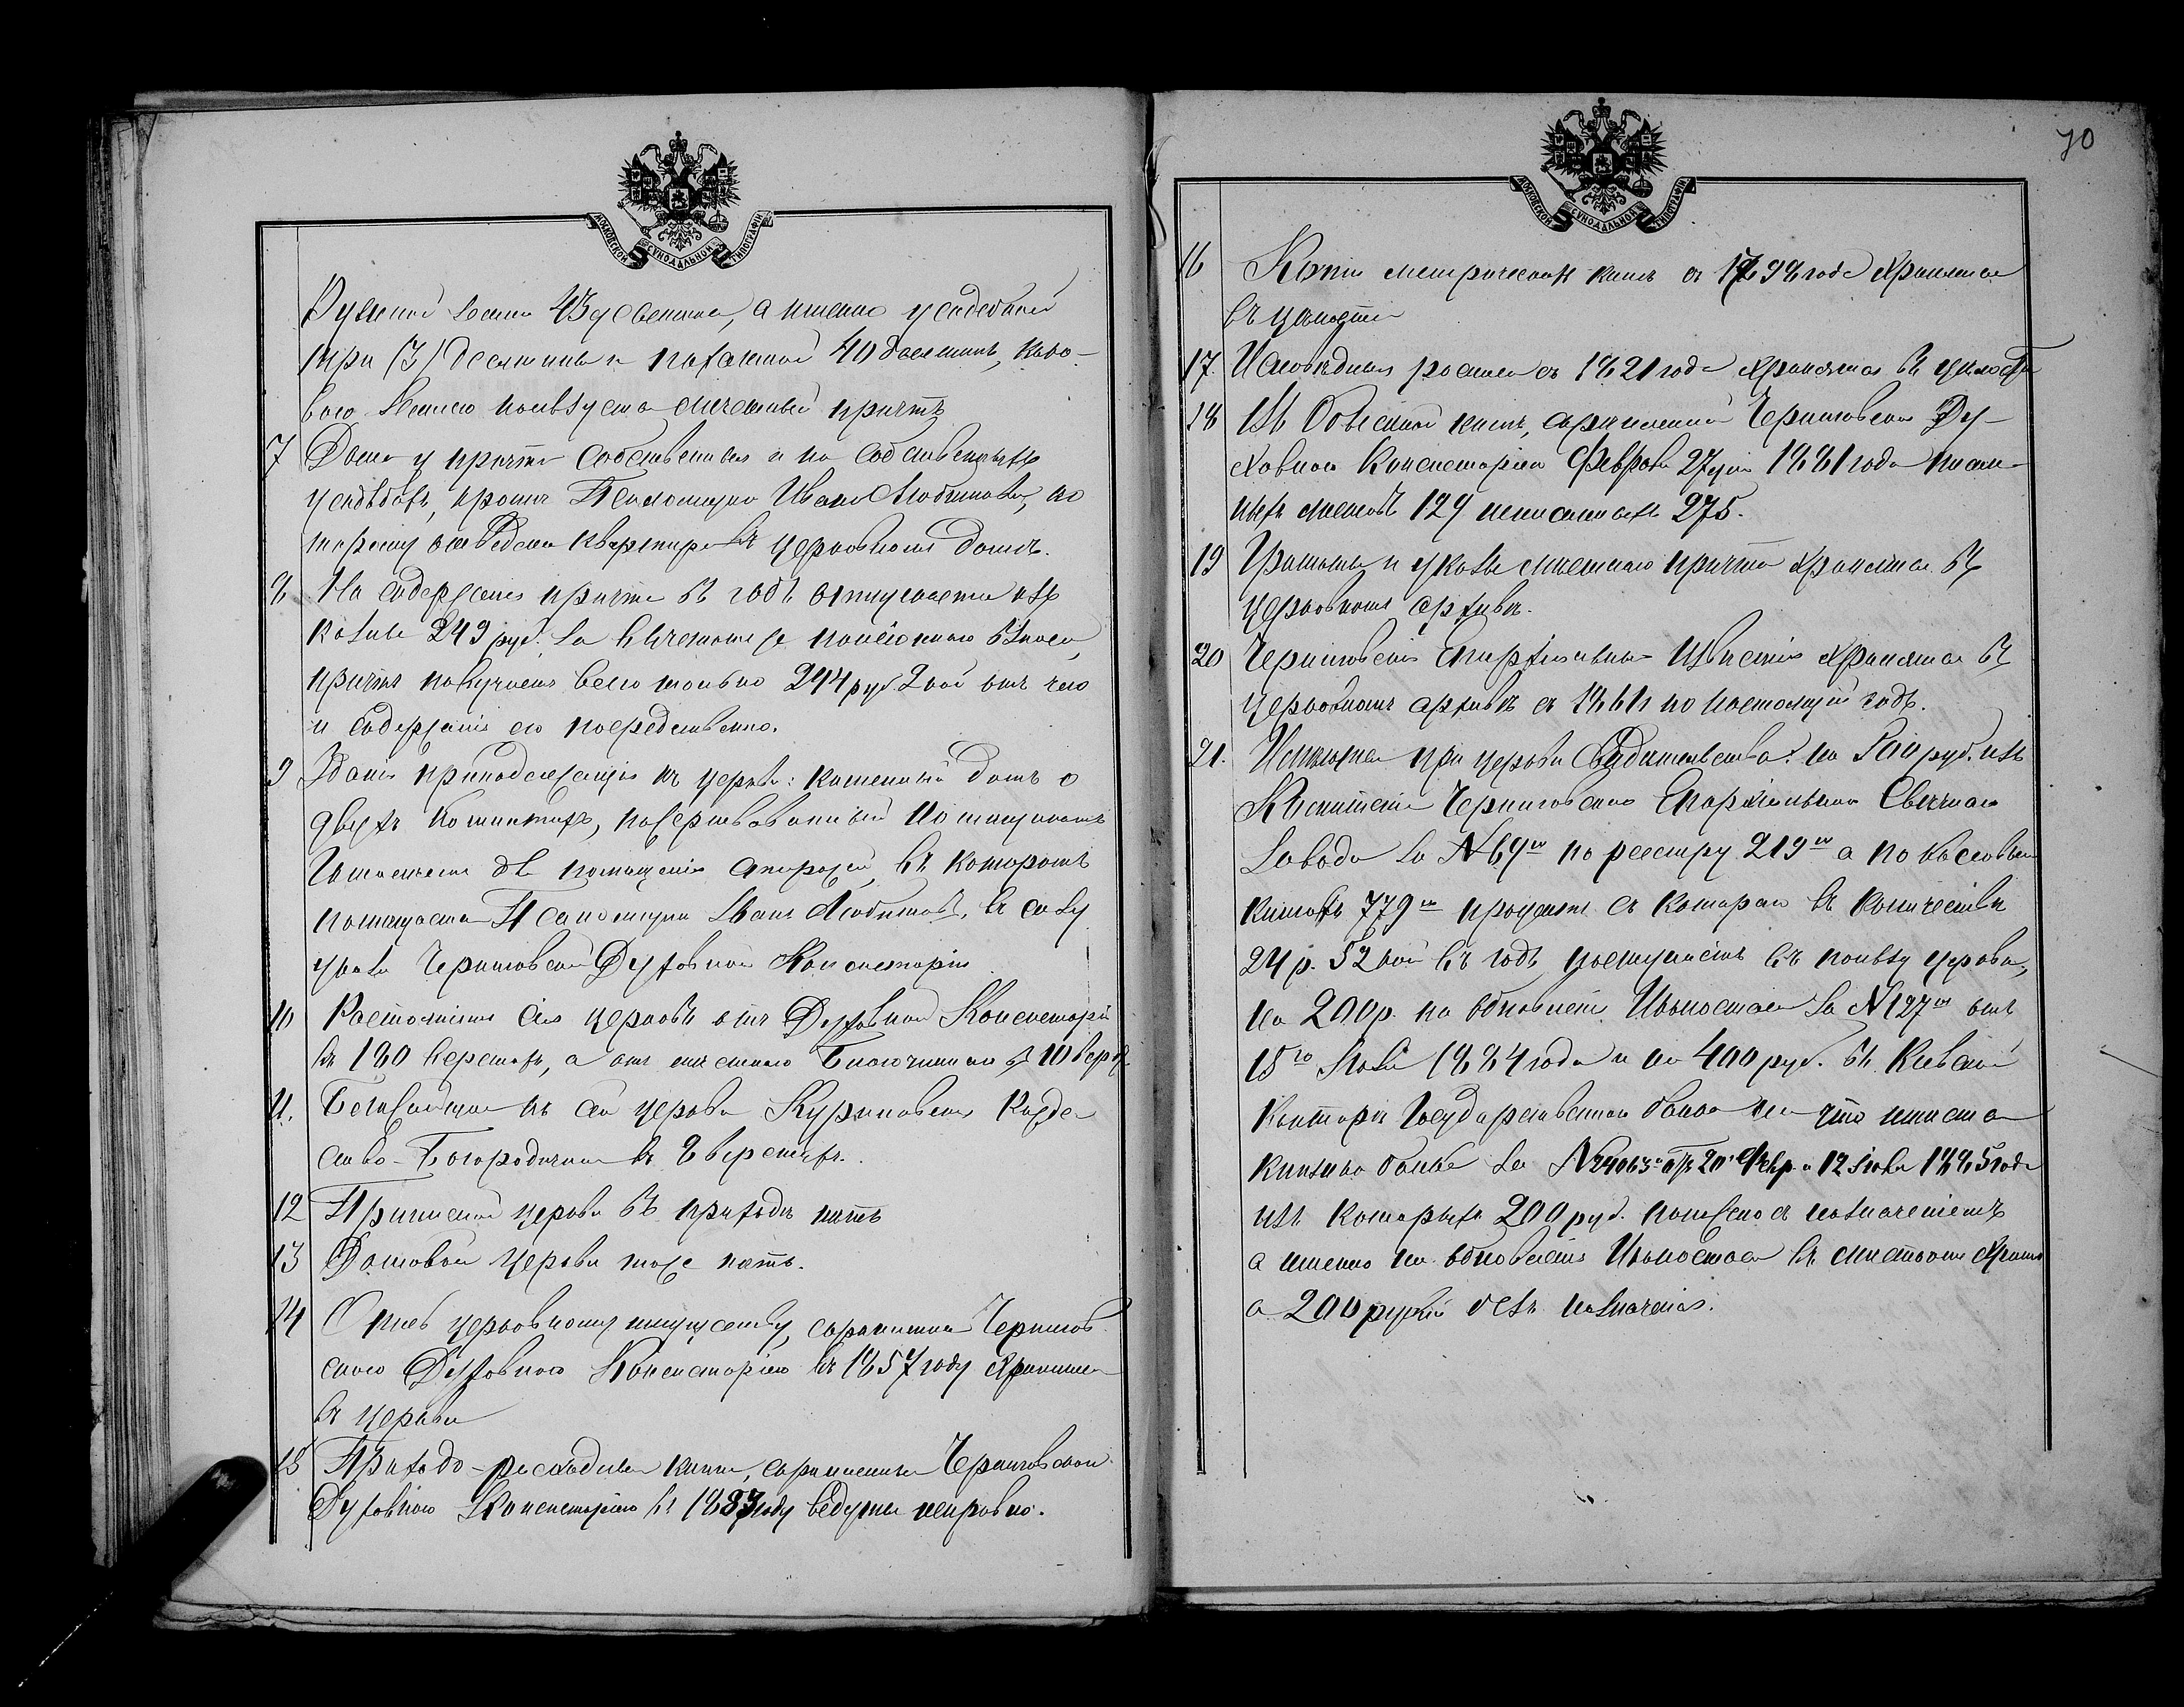 МОСКОВСКОЙ СѴНОДАЛЬНОЙ ТИПОГРАФІИ
Ружной земли 43 десятины, а именно усадебной
три (3) десятины и пахатной 40 десятинъ, како-
вою землею пользуется мѣстный причтъ
7 Дома у причта собственные и на собственныхъ
усадьбахъ, кромѣ Псаломщика Ивана Любимова, ко
торому отведена квартира въ церковномъ домѣ.
8 На содержаніе причта въ годъ отпускается изъ
казны 249 руб. за вычетомъ же пенсіоннаго взноса,
причтъ получаетъ всего только 244 руб 2 коп отъ чего
и содержаніе его посредственно.
9 Зданія принадлежащія къ церкви: каменный домъ о
двухъ комнатахъ, пожертвованный
для помѣщенія сторожей, въ которомъ
помѣщается Псаломщикъ Иванъ Любимовъ, въ силу
указа Черниговской Духовной Консисторіи
10 Разстояніемъ сія церковь отъ Духовной Консисторіи
въ 180 верстахъ, а отъ мѣстнаго Благочиннаго въ 10 верс
11. Ближайшая къ сей церкви Куриловская Рожде
ство-Богородичная въ 8 верстахъ.
12 Приписной церкви въ приходѣ нѣтъ
13 Домовой церкви тоже нѣтъ.
14 Опись церковному имуществу, скрѣпленная Чернигов
скою Духовною Консисторіею въ 1857 году хранится
въ церкви
15 Приходо-расходныя книги, скрѣпленныя Черниговскою
Духовною Консисторіею въ 1883 году ведутся исправно.
70
МОСКОВСКОЙ СѴНОДАЛЬНОЙ ТИПОГРАФІИ
16 Копіи метрическихъ книгъ съ 1798 года хранятся
въ цѣлости
17. Исповѣдныя росписи съ 1821 года хранятся въ цѣлости
18 Въ обыскной книгѣ, скрѣпленной Черниговскою Ду-
ховною Консисторіею Февраля 27 дня 1881 года писан-
ныхъ листовъ 129 неписанныхъ 275.
19 Грамоты и указы мѣстнаго причта хранятся въ
церковномъ архивѣ.
20 Черниговскія Епархіальныя Извѣстія хранятся въ
церковномъ архивѣ съ 1861 по настоящій годъ.
21. Имѣются при церкви Свидѣтельства: на руб. изъ
Комитета Черниговскаго Епархіальнаго Свѣчнаго
Завода за № 69м по реестру 219м а по кассовымъ
книгамъ 779м проценты съ которая въ количествѣ
24 р. 52 коп въ годъ поступаютъ въ пользу церкви,
на 200 р. на обновленіе Иконостаса за № 127м отъ
15го Іюля 1884 года и на 400 руб. въ Кіевской
Конторѣ Государственнаго банка на что имѣется
книжка банка за № 24063м отъ 20 Февр. и 12 Іюля 1885 года
изъ которыхъ 200 руб. положено съ назначеніемъ
а именно на обновленіе Иконостаса въ мѣстномъ храмѣ
а 200 рублей безъ назначенія.